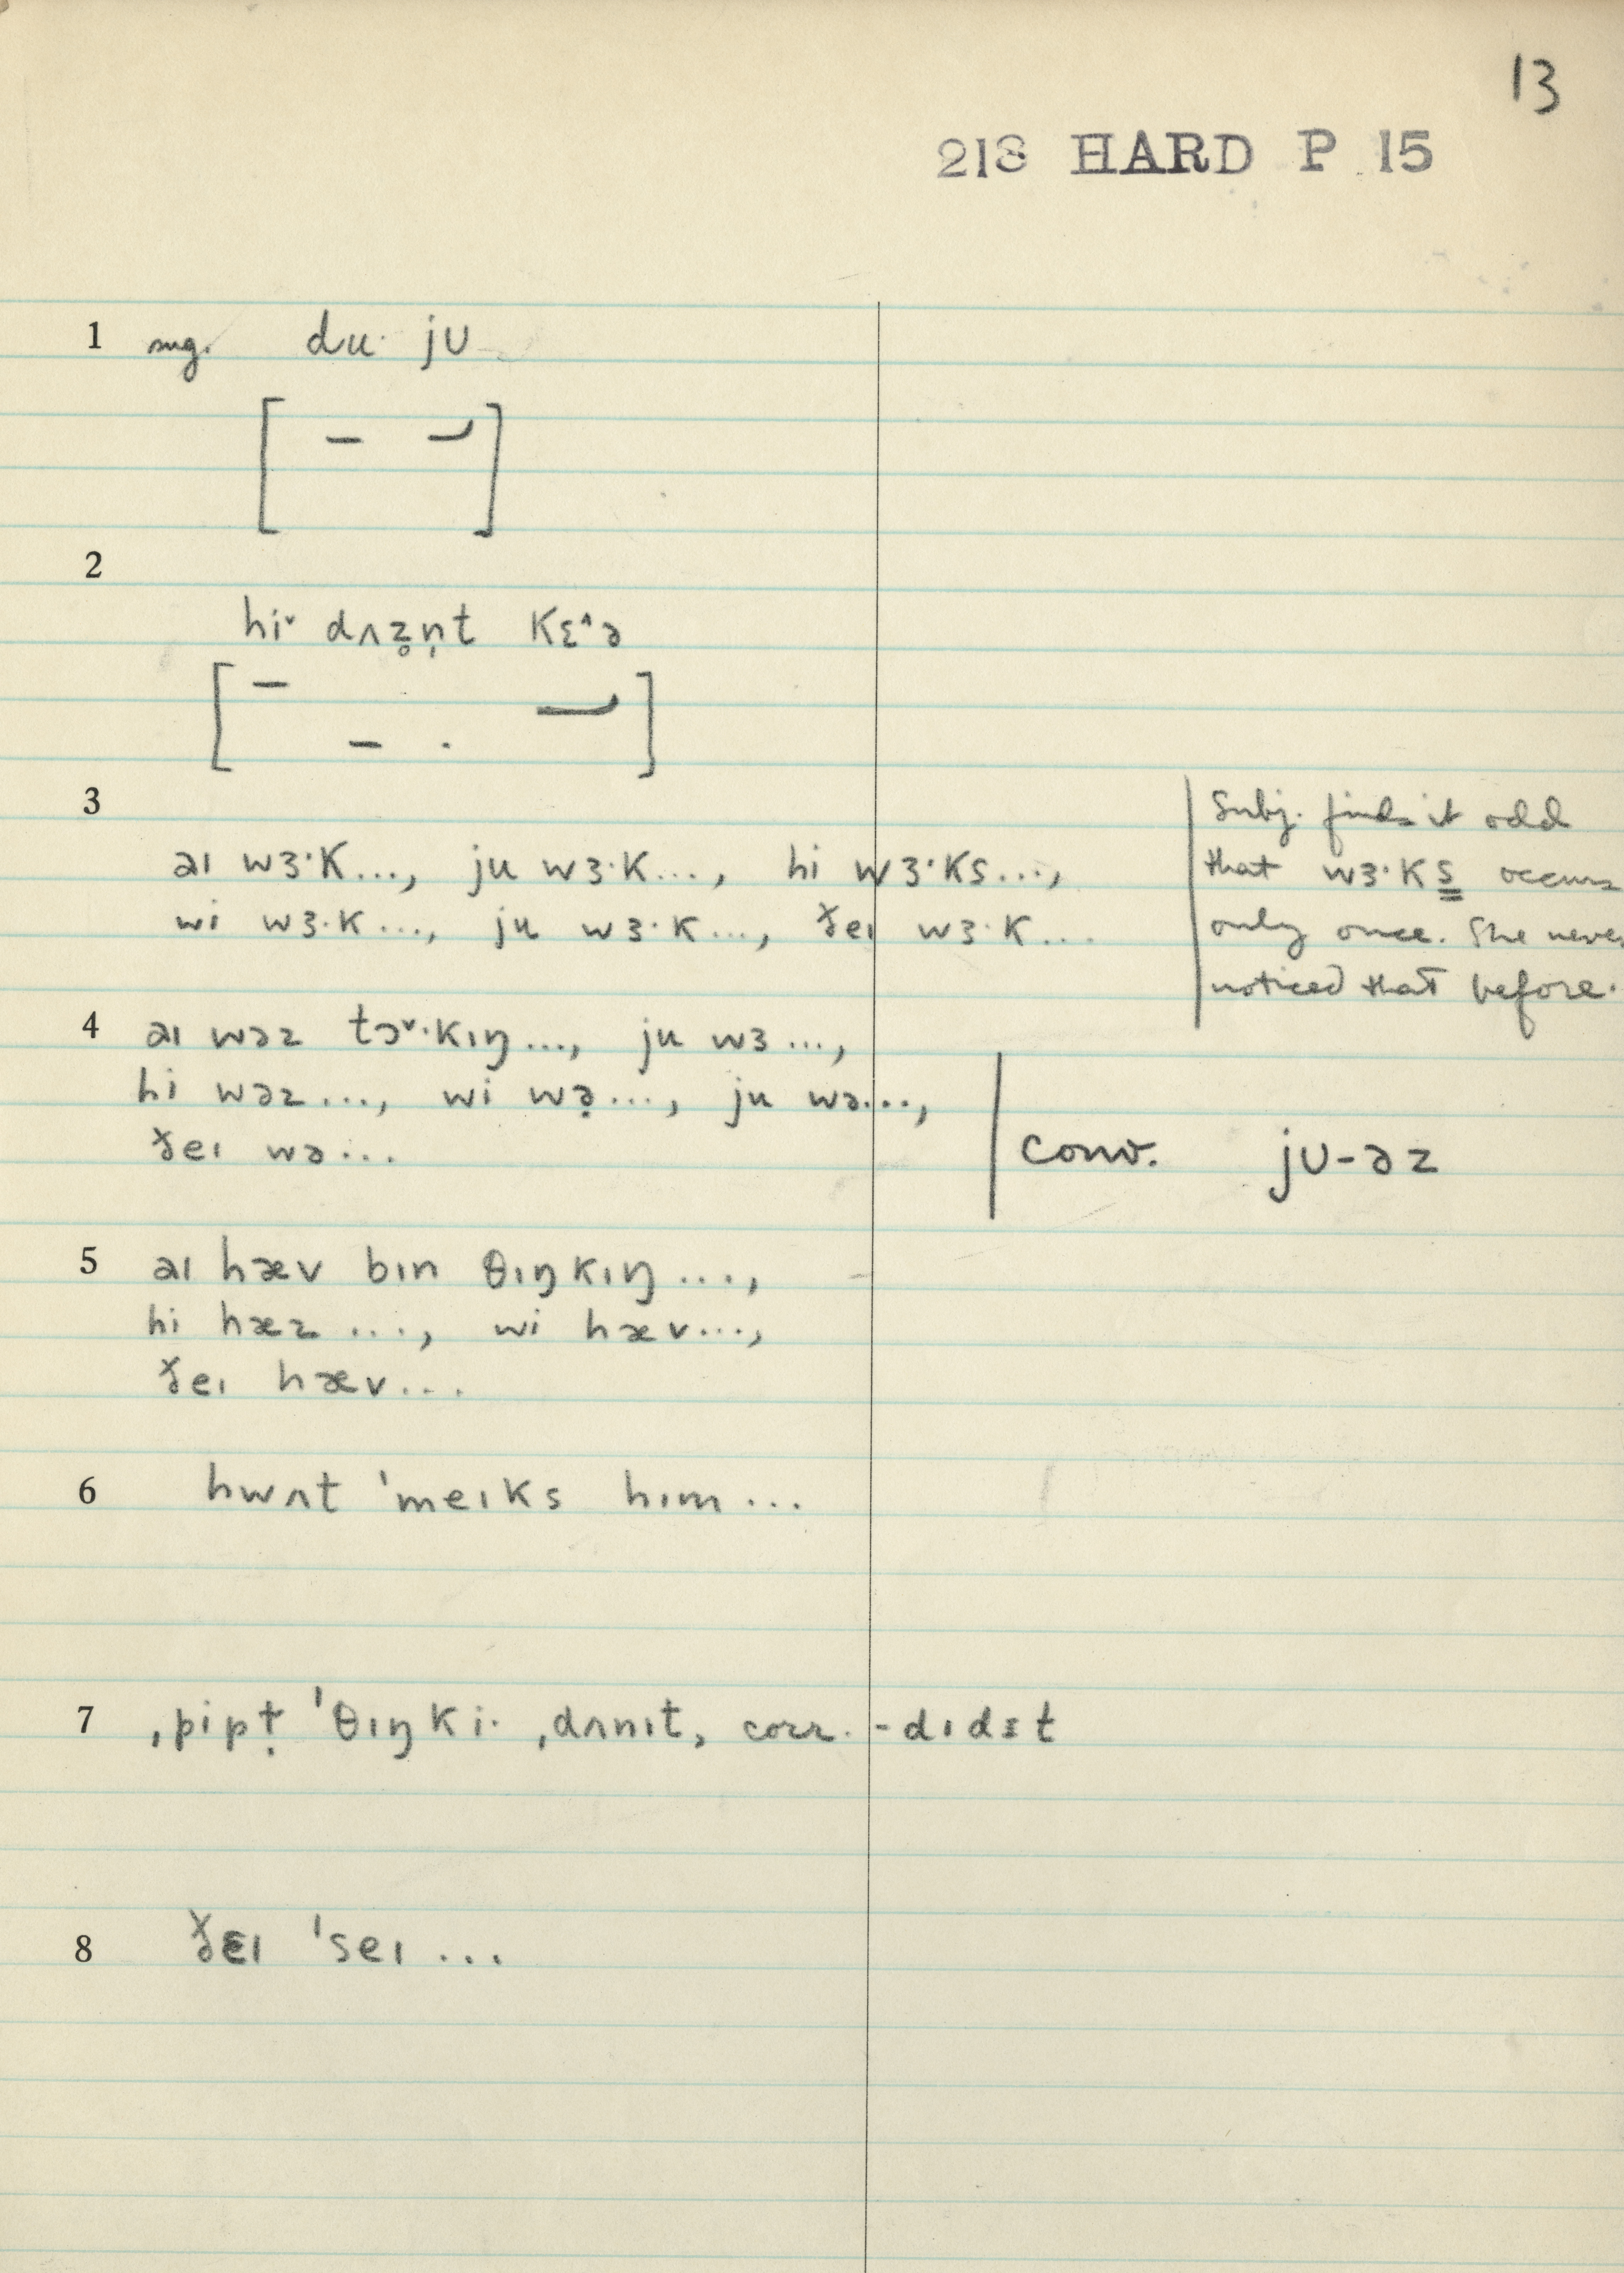 13
218 HARD P 15
1 sug. du· jʊ
2
hi˅ dʌz̥n̩t kɛ˄ə
3
aɪ wɜ·k..., ju wɜ·k..., hi wɜ·ks...,
wi wɜ·k..., ju wɜ·k..., ðeɪ wɜ·k...
Subj. finds it odd
that wɜ·ks occurs
only once. She never
noticed that before.
4 aɪ wəz tɔ˅·kɪŋ..., ju wɜ...,
hi wəz..., wi wə̣..., ju wə...,
ðeɪ wə...
conv. jʊ-əz
5 aɪ hæv bɪn θɪŋkɪŋ...,
hi hæz ..., wi hæv...,
ðeɪ hæv...
6 hwʌt ˈmeɪks hɪm...
7 ˌpipṭ ˈθɪŋki· ˌdʌnɪt, corr. -dɪdɪt
8 ðɛɪ ˈseɪ ...